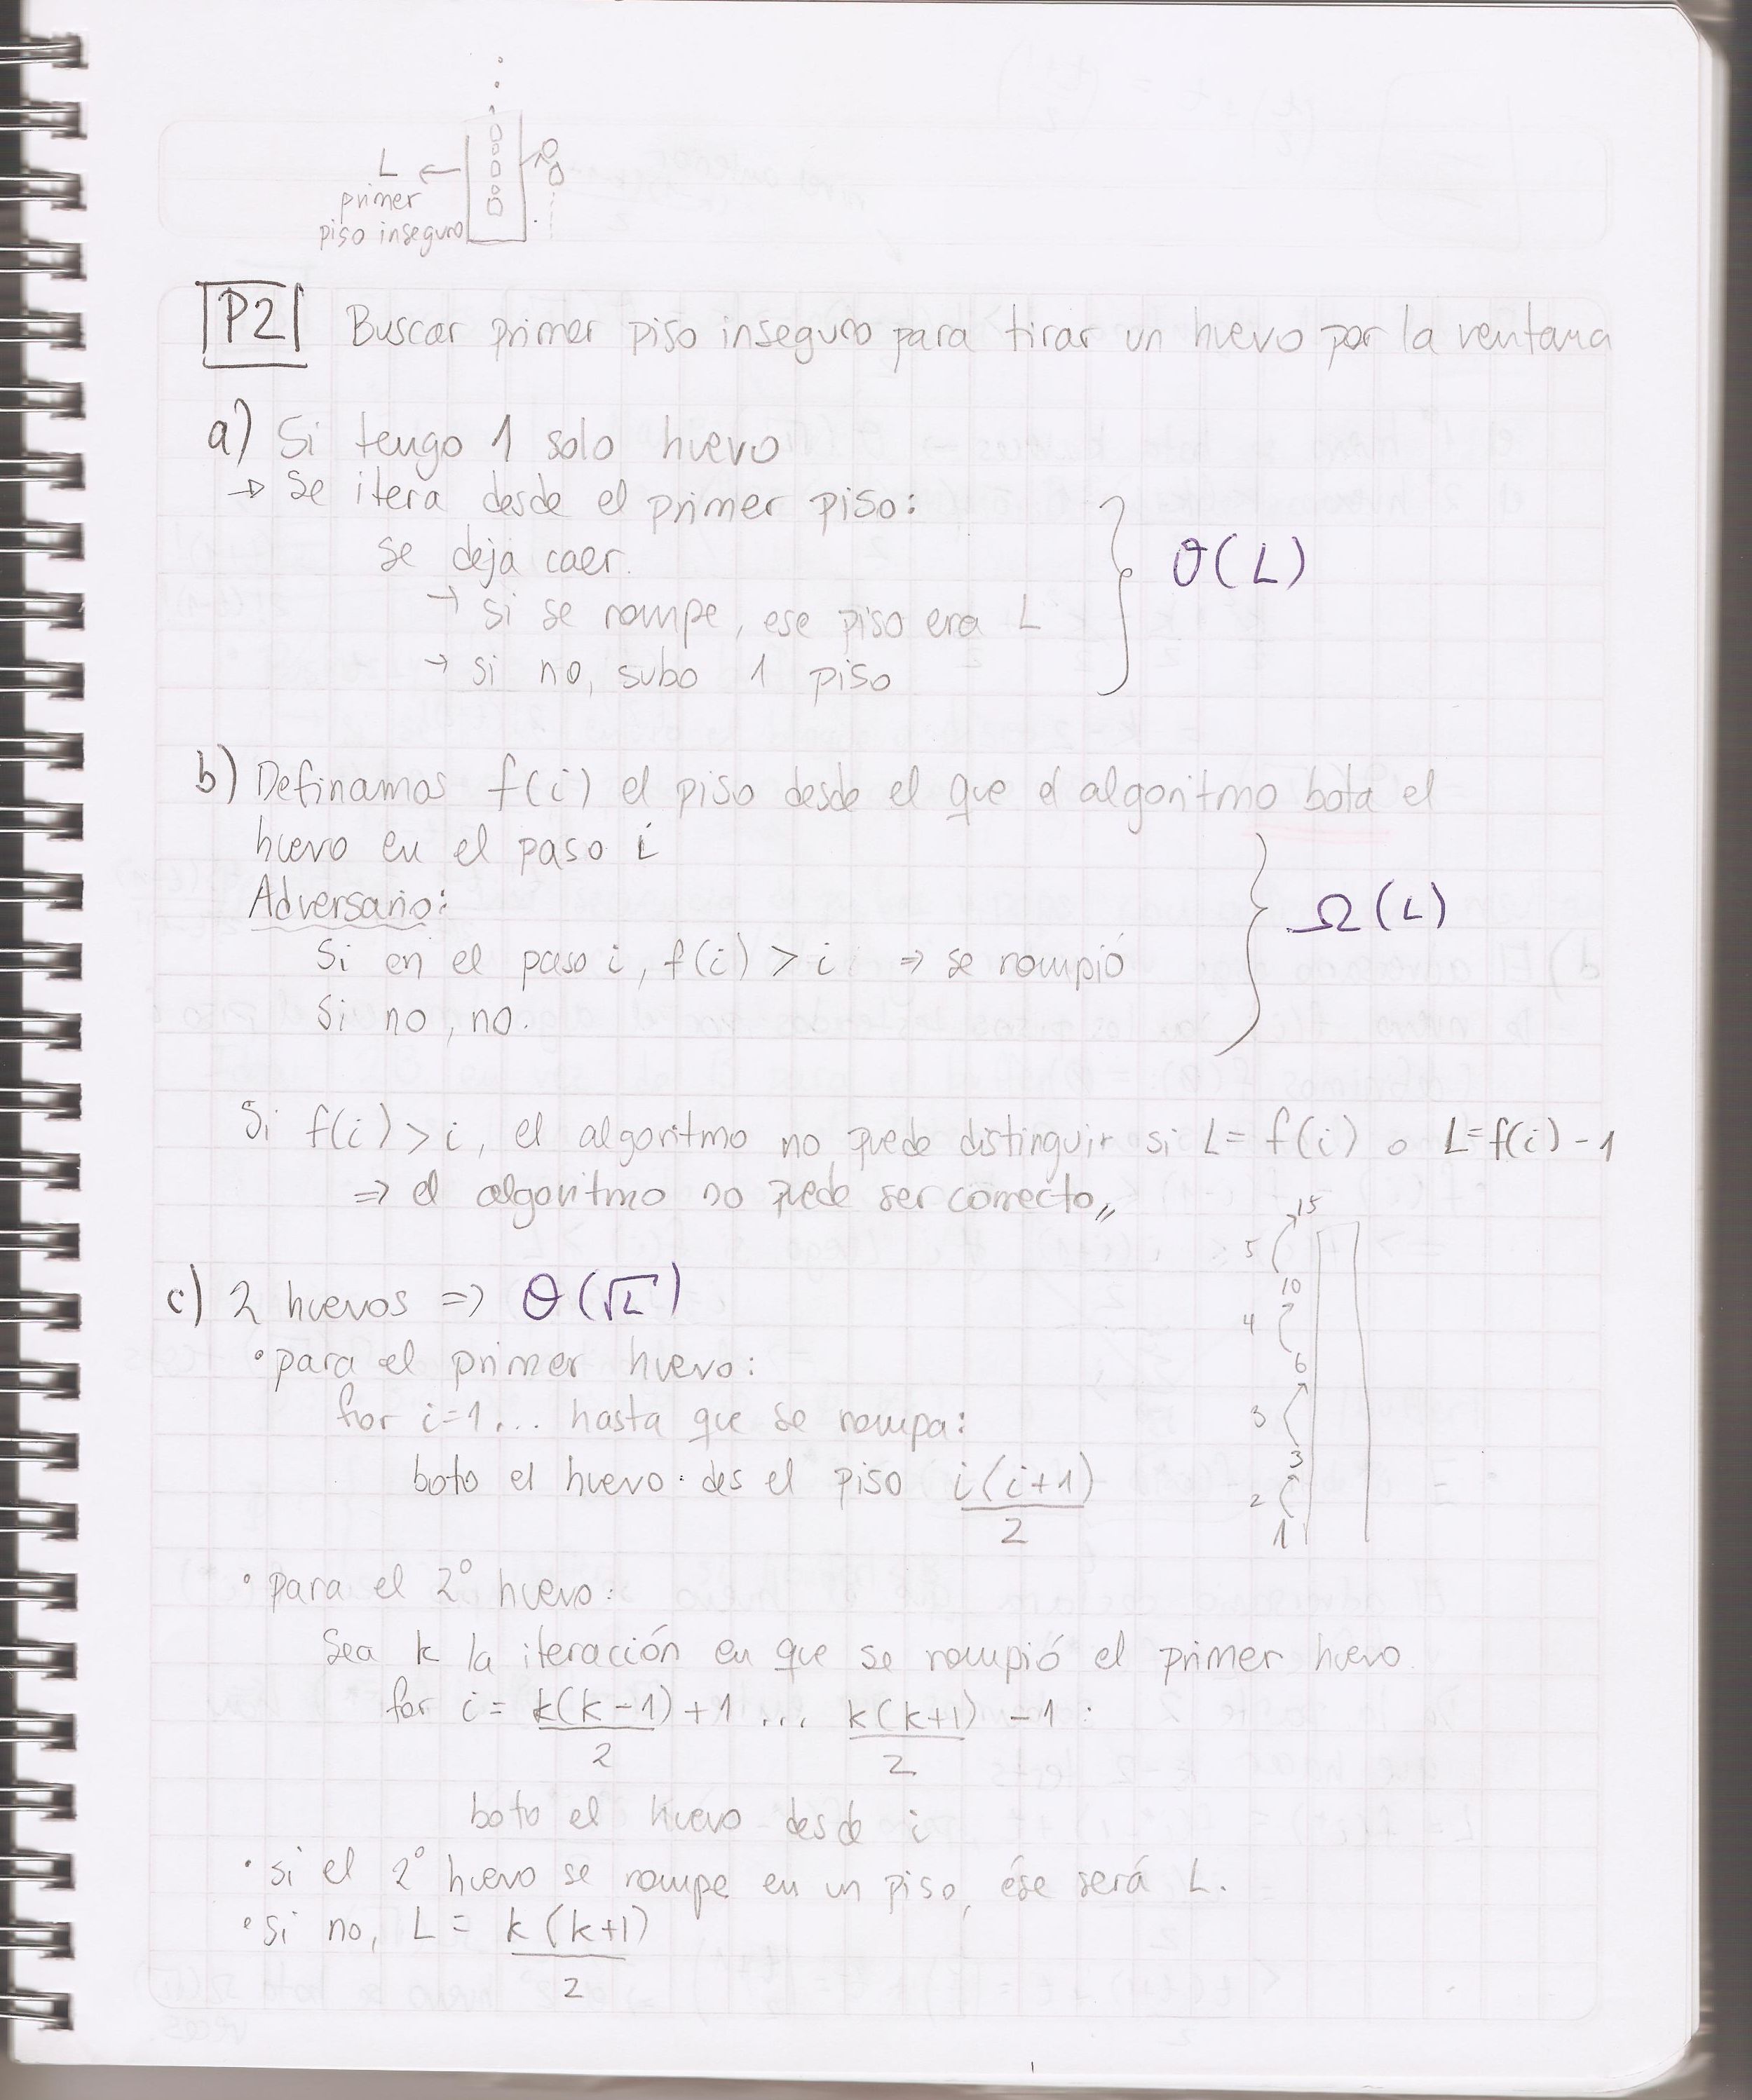 L ←
primer
piso inseguro
P2 Buscar primer piso inseguro para tirar un huevo por la ventana
a) Si tengo 1 solo huevo
→ Se itera desde el primer piso:
se deja caer.
→ si se rompe, ese piso era L
→ si no, subo 1 piso
} O(L)
b) Definamos f(i) el piso desde el que el algoritmo bota el
huevo en el paso i
Adversario:
Si en el paso i, f(i) > i ⇒ se rompió
Si no, no.
} Ω(L)
Si f(i) > i, el algoritmo no puede distinguir si L = f(i) o L = f(i) - 1
⇒ el algoritmo no puede ser correcto,,
c) 2 huevos ⇒ Θ(√L)
• para el primer huevo:
for i=1... hasta que se rompa:
boto el huevo des el piso i(i+1)/2
• para el 2° huevo:
Sea k la iteración en que se rompió el primer huevo.
for i = k(k-1)/2 + 1 ... k(k+1)/2 - 1:
boto el huevo desde i
• si el 2° huevo se rompe en un piso, ése será L.
• si no, L = k(k+1)/2
15
5
10
4
6
3
3
2
1